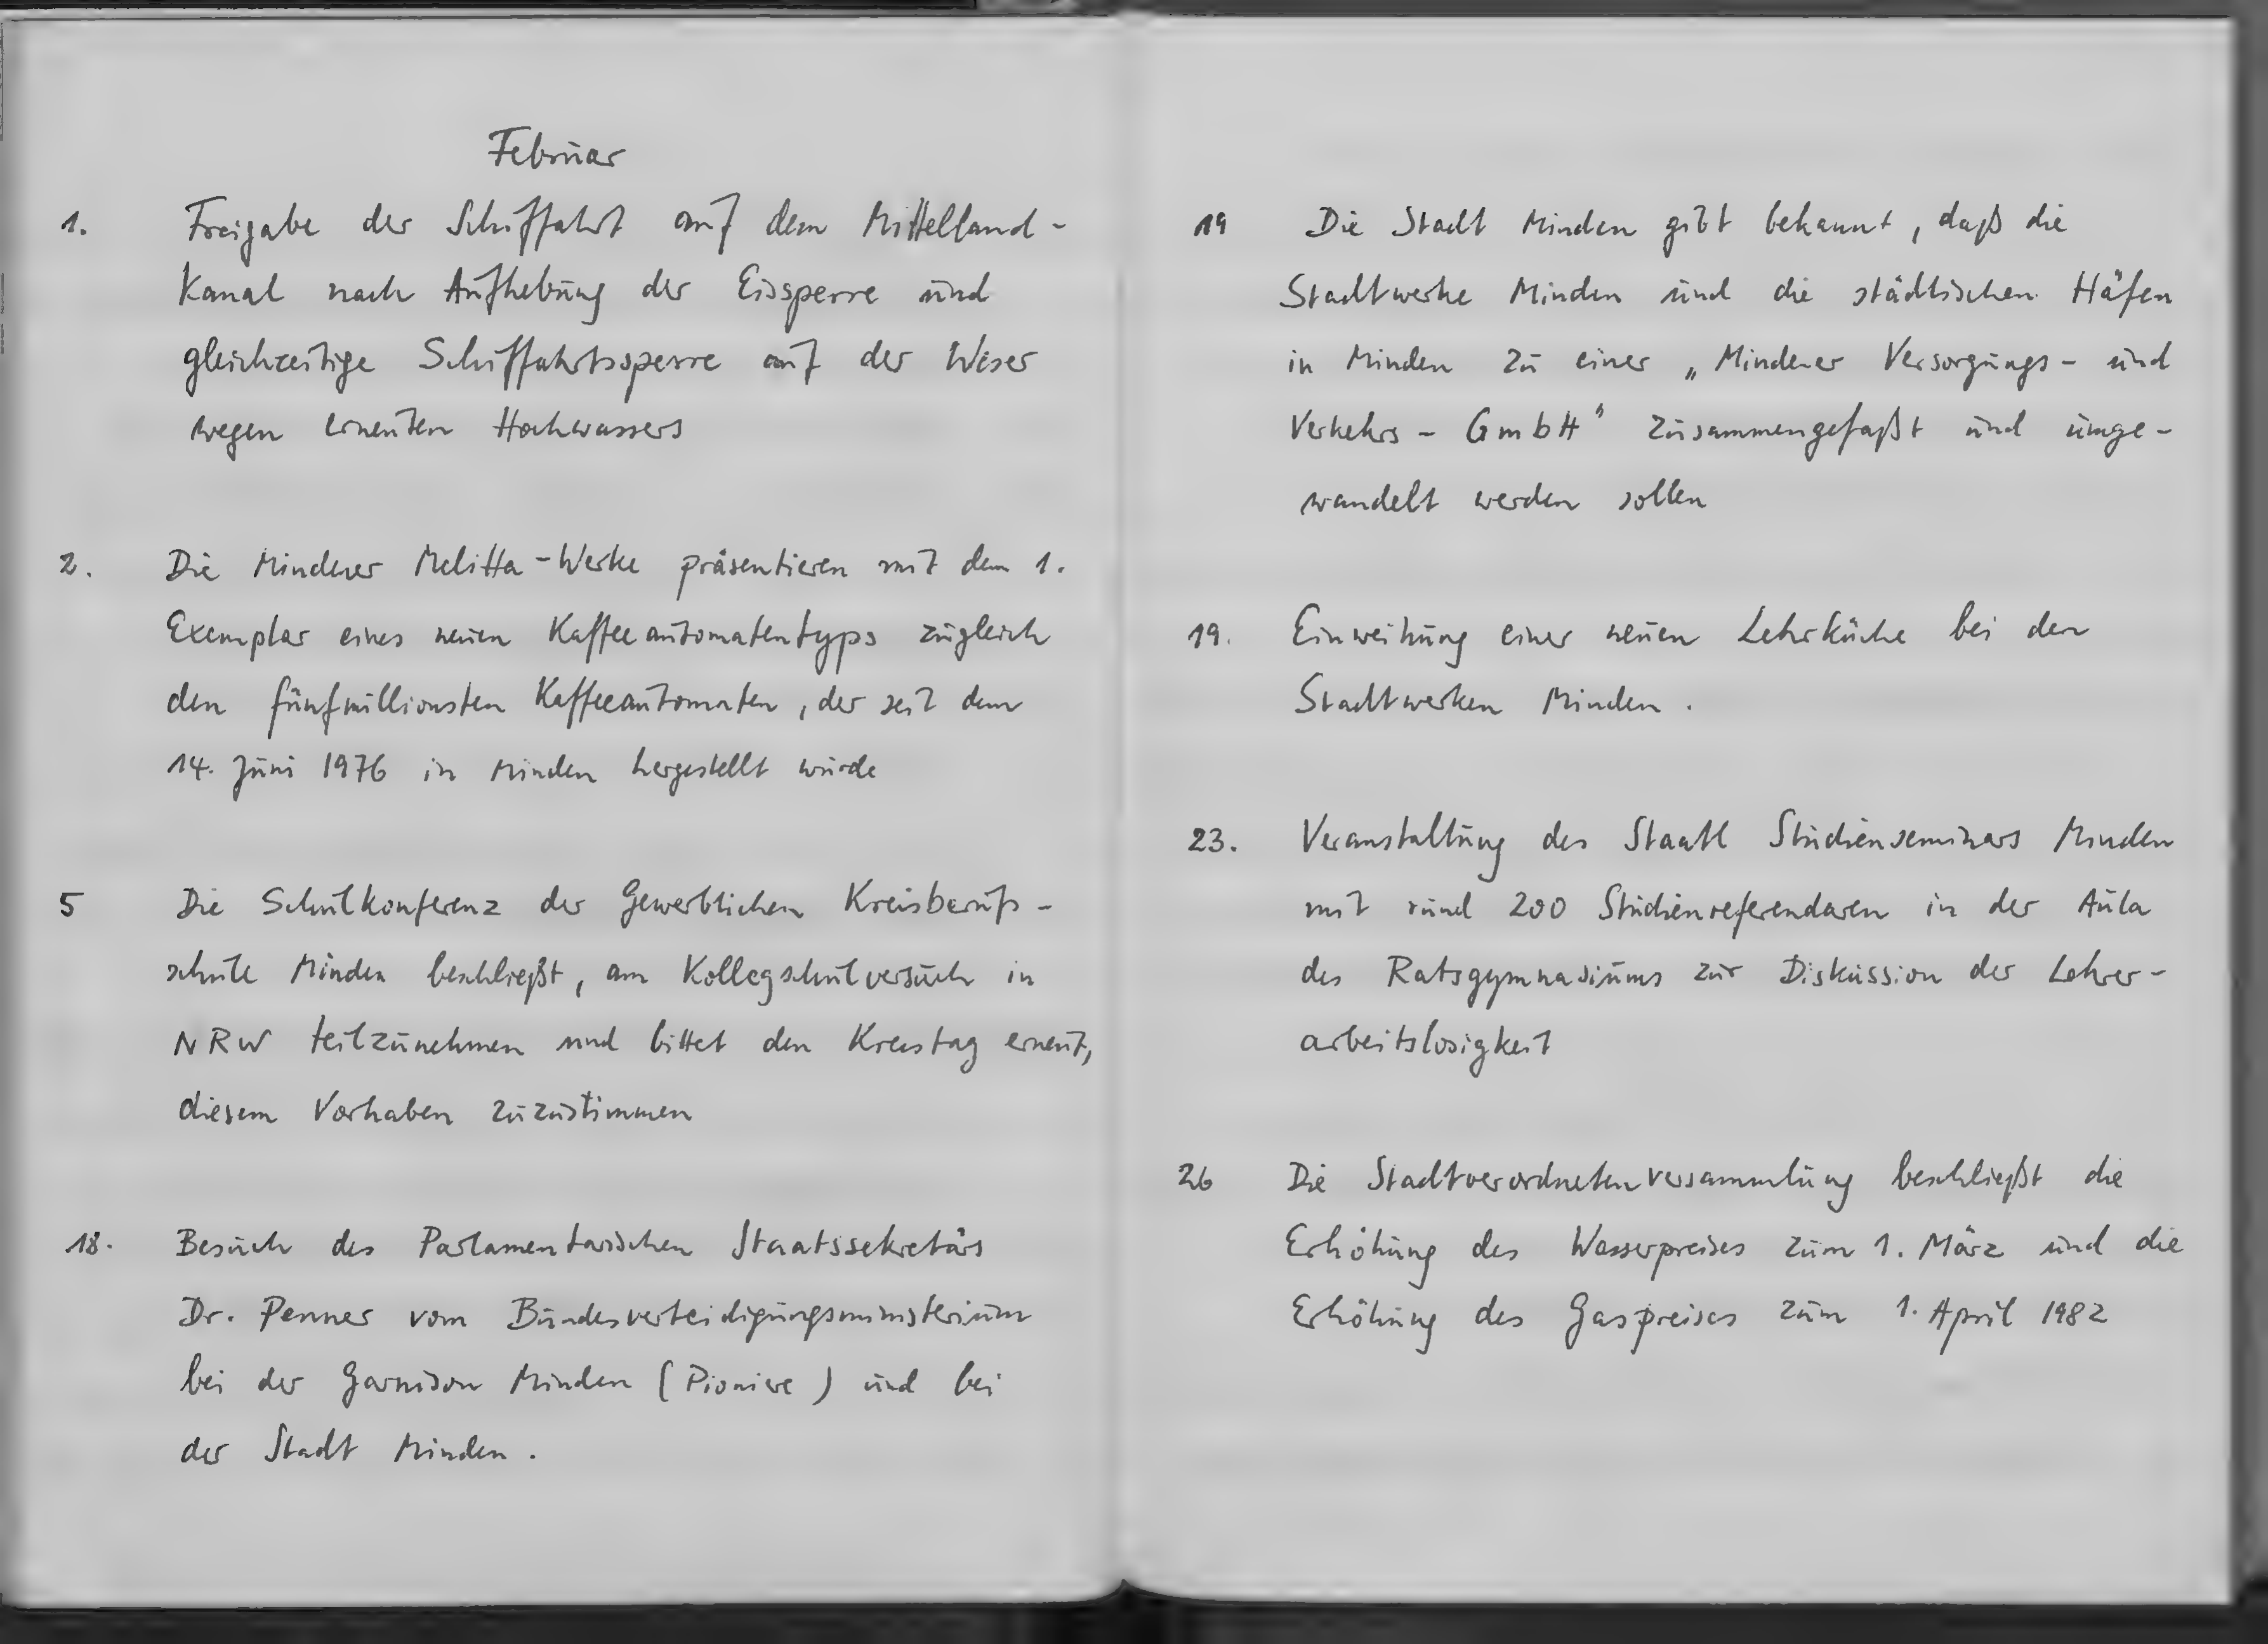 Februar
1. Freigabe der Schiffahrt auf dem Mittelland-
Kanal nach Aufhebung der Eissperre und
gleichzeitige Schiffahrtssperre auf der Weser
wegen erneuten Hochwassers
2. Die Mindener Melitta-Werke präsentieren mit dem 1.
Exemplar eines neuen Kaffeeautomatentyps zugleich
den fünfmillionsten Kaffeeautomaten, der seit dem
14. Juni 1976 in Minden hergestellt wurde
5 Die Schulkonferenz der Gewerblichen Kreisberufs-
schule Minden beschließt, am Kollegschulversuch in
NRW teilzunehmen und bittet den Kreistag erneut,
diesem Vorhaben zuzustimmen
18. Besuch des Parlamentarischen Staatssekretärs
Dr. Penner vom Bundesverteidigungsministerium
bei der Garnison Minden (Pioniere) und bei
der Stadt Minden.
19 Die Stadt Minden gibt bekannt, daß die
Stadtwerke Minden und die städtischen Häfen
in Minden zu einer „Mindener Versorgungs- und
Verkehrs-GmbH" zusammengefaßt und umge-
wandelt werden sollen
19. Einweihung einer neuen Lehrküche bei den
Stadtwerken Minden.
23. Veranstaltung des Staatl Studienseminars Minden
mit rund 200 Studienreferendaren in der Aula
des Ratsgymnasiums zur Diskussion der Lehrer-
arbeitslosigkeit
26 Die Stadtverordnetenversammlung beschließt die
Erhöhung des Wasserpreises zum 1. März und die
Erhöhung des Gaspreises zum 1. April 1982